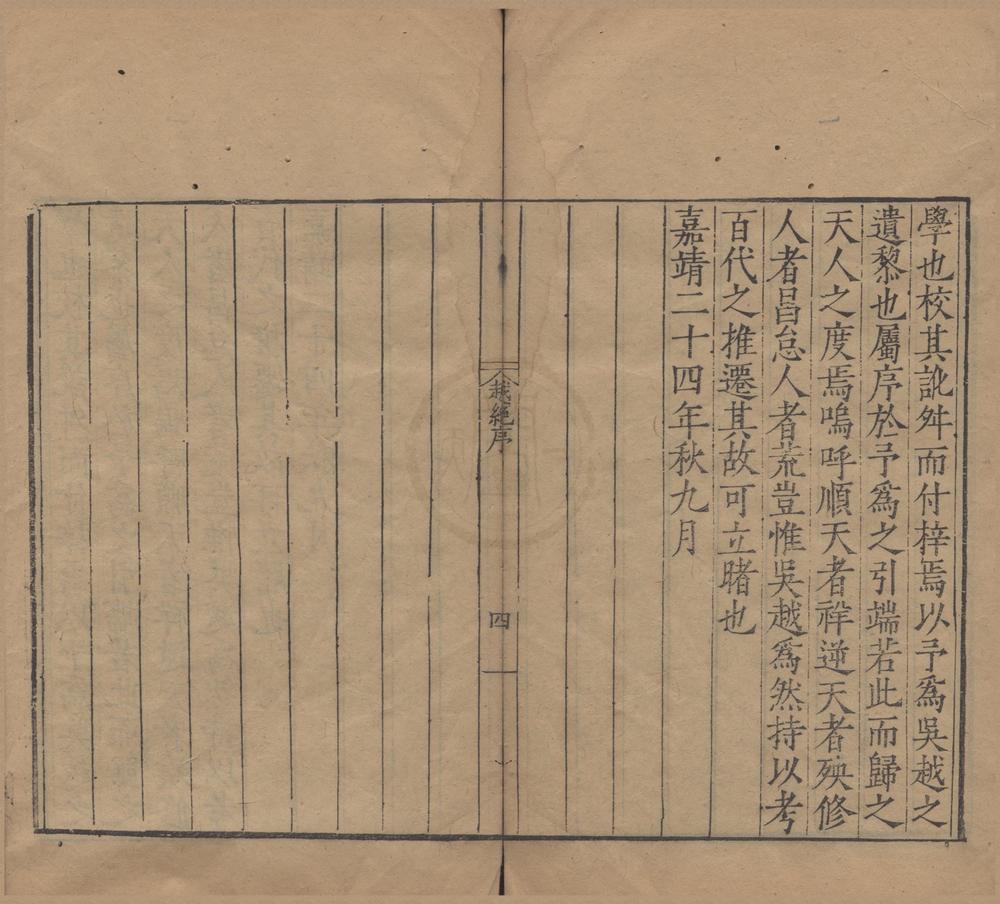 學也校其訛舛而付梓焉以予爲吳越之
遺黎也屬序於予爲之引端若此而歸之
天人之度焉嗚呼順天者祥逆天者殃修
人者昌怠人者荒豈惟吳越爲然持以考
百代之推遷其故可立睹也
嘉靖二十四年秋九月
越絕序
四